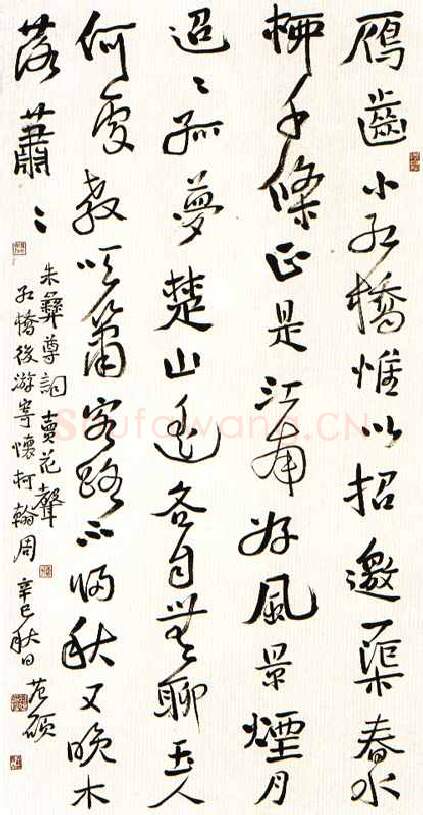 鴈齒小紅橋惟以招邀一渠春水
柳千條正是江南好風景煙月
迢〻孤夢楚山遙各自無聊玉人
何處教吹簫客路不秋又晚木
落蕭〻
朱彝尊詞賣花聲
紅橋後游寄懷柯翰周 辛巳秋日 范碩
Shufawang.CN